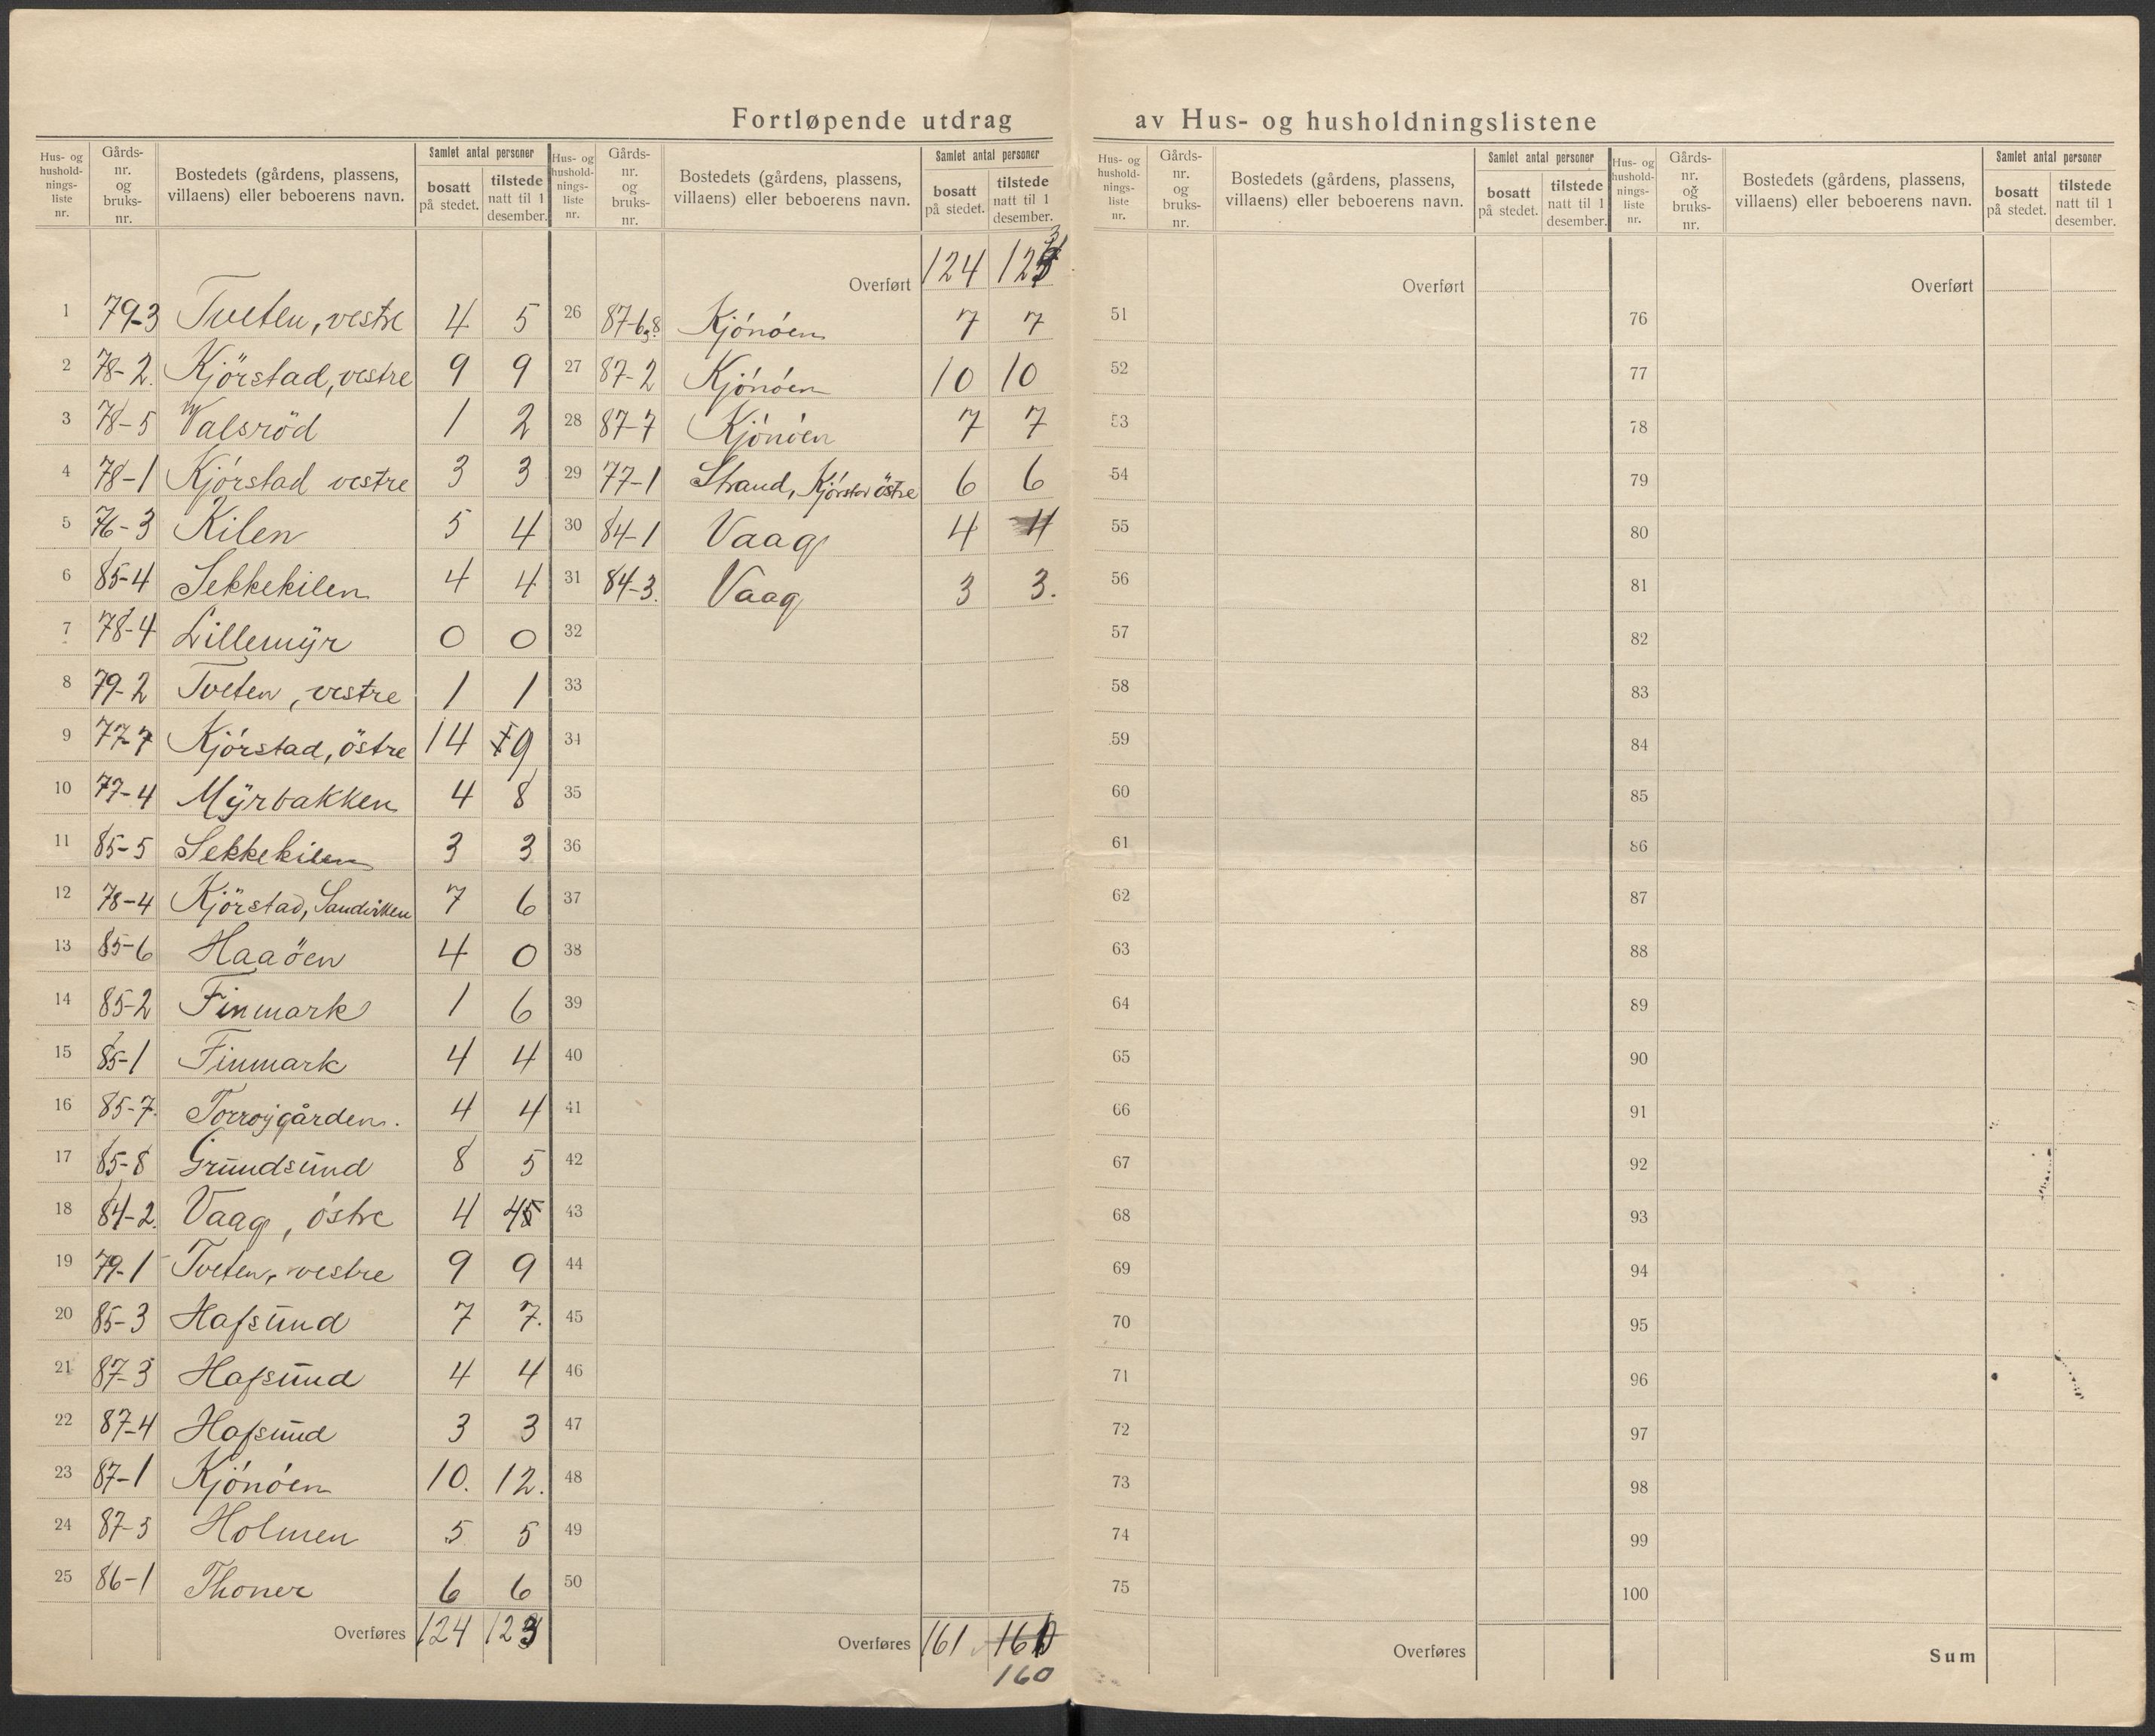 Fortløpende utdrag av Hus- og husholdningslistene
Hus- og hushold-nings-liste nr. Gårds-nr. og bruks-nr. Bostedets (gårdens, plassens, villaens) eller beboerens navn. Samlet antal personer bosatt på stedet. tilstede natt til 1 desember.
1 79-3 Tveten, vestre 4 5
2 78-2. Kjörstad, vestre 9 9
3 78-5 Valsröd 1 2
4 78-1 Kjórstad vestre 3 3
5 76-3 Kilen 5 4
6 85-4 Sekkekilen 4 4
7 78-4 Lillemÿr 0 0
8 79-2 Tveten, vestre 1 1
9 77-7 Kjórstad, östre 14 9
10 77-4 Mÿrbakken 4 8
11 85-5 Sekkekilen 3 3
12 78-4 Kjörstad, Sandviken 7 6
13 85-6 Haaöen 4 0
14 85-2 Finmark 1 6
15 85-1 Finmark 4 4
16 85-7. 4 4
17 85-8 Grūndsūnd 8 5
18 84-2. Vaag, óstre 4 4
19 79-1 Tveten, vestre 9 9
20 85-3 Hafsūnd 7 7.
21 87-3 Hafsūnd 4 4
22 87-4 Hafsūnd 3 3
23 87-1 Kjónóen 10. 12.
24 87-5 Holmen 5 5
25 86-1 Thoner 6 6
Overføres 124 123
Hus- og hushold-nings-liste nr. Gårds-nr. og bruks-nr. Bostedets (gårdens, plassens, villaens) eller beboerens navn. Samlet antal personer bosatt på stedet. tilstede natt til 1 desember.
Overført 124 123
26 87-6,8 Kjónóen 7 7
27 87-2 Kjónóen 10 10
28 87-7 Kjónóen 7 7
29 77-1 Strand, Kjörstad östre 6 6
30 84-1 Vaag 4 4
31 84-3. Vaag 3 3.
32
33
34
35
36
37
38
39
40
41
42
43
44
45
46
47
48
49
50
Overføres 161 161
160
Hus- og hushold-nings-liste nr. Gårds-nr. og bruks-nr. Bostedets (gårdens, plassens, villaens) eller beboerens navn. Samlet antal personer bosatt på stedet. tilstede natt til 1 desember.
Overført
51
52
53
54
55
56
57
58
59
60
61
62
63
64
65
66
67
68
69
70
71
72
73
74
75
Overføres
Hus- og hushold-nings-liste nr. Gårds-nr. og bruks-nr. Bostedets (gårdens, plassens, villaens) eller beboerens navn. Samlet antal personer bosatt på stedet. tilstede natt til 1 desember.
Overført
76
77
78
79
80
81
82
83
84
85
86
87
88
89
90
91
92
93
94
95
96
97
98
99
100
Sum